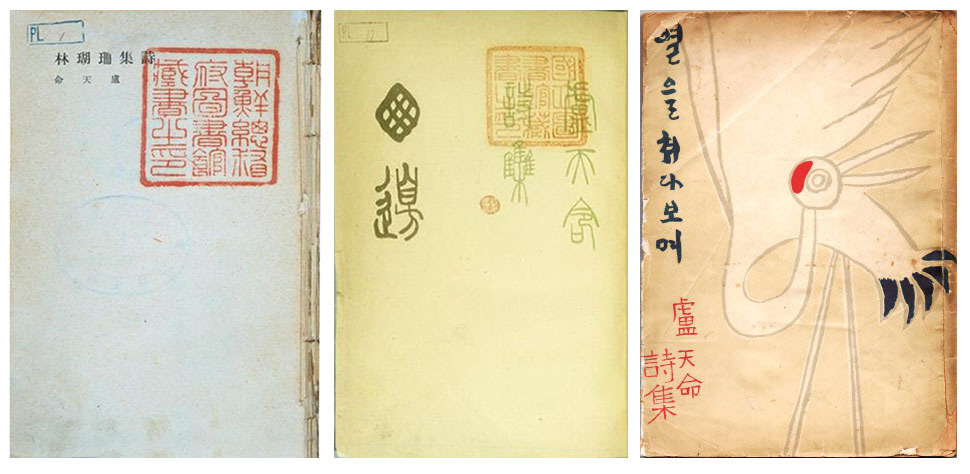 PL
詩集珊瑚林
盧天命
朝鮮總督
府圖書館
藏書之印
PL
盧天命
詩集
窓邊
별을 쳐다보며
盧天命
詩集